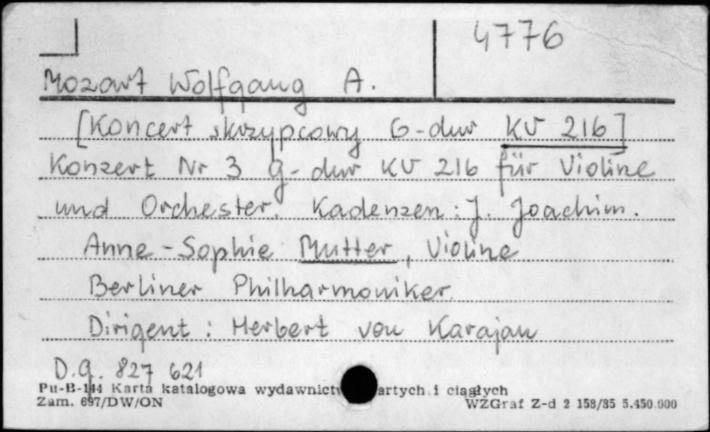 4776
Mozart Wolfgang A.
[Koncert skrzypcowy G-dur KV 216]
Konzert Nr 3 G-dur KV 216 für Violine
und Orchester. Kadenzen: J. Joachim.
Anne-Sophie Mutter, Violine
Berliner Philharmoniker
Dirigent: Herbert von Karajan
D.g. 827 621
Pu-B-144 Karta katalogowa wydawnict artych i ciągłych
Zam. 697/DW/ON WZGraf Z-d 2 158/85 5.450.000